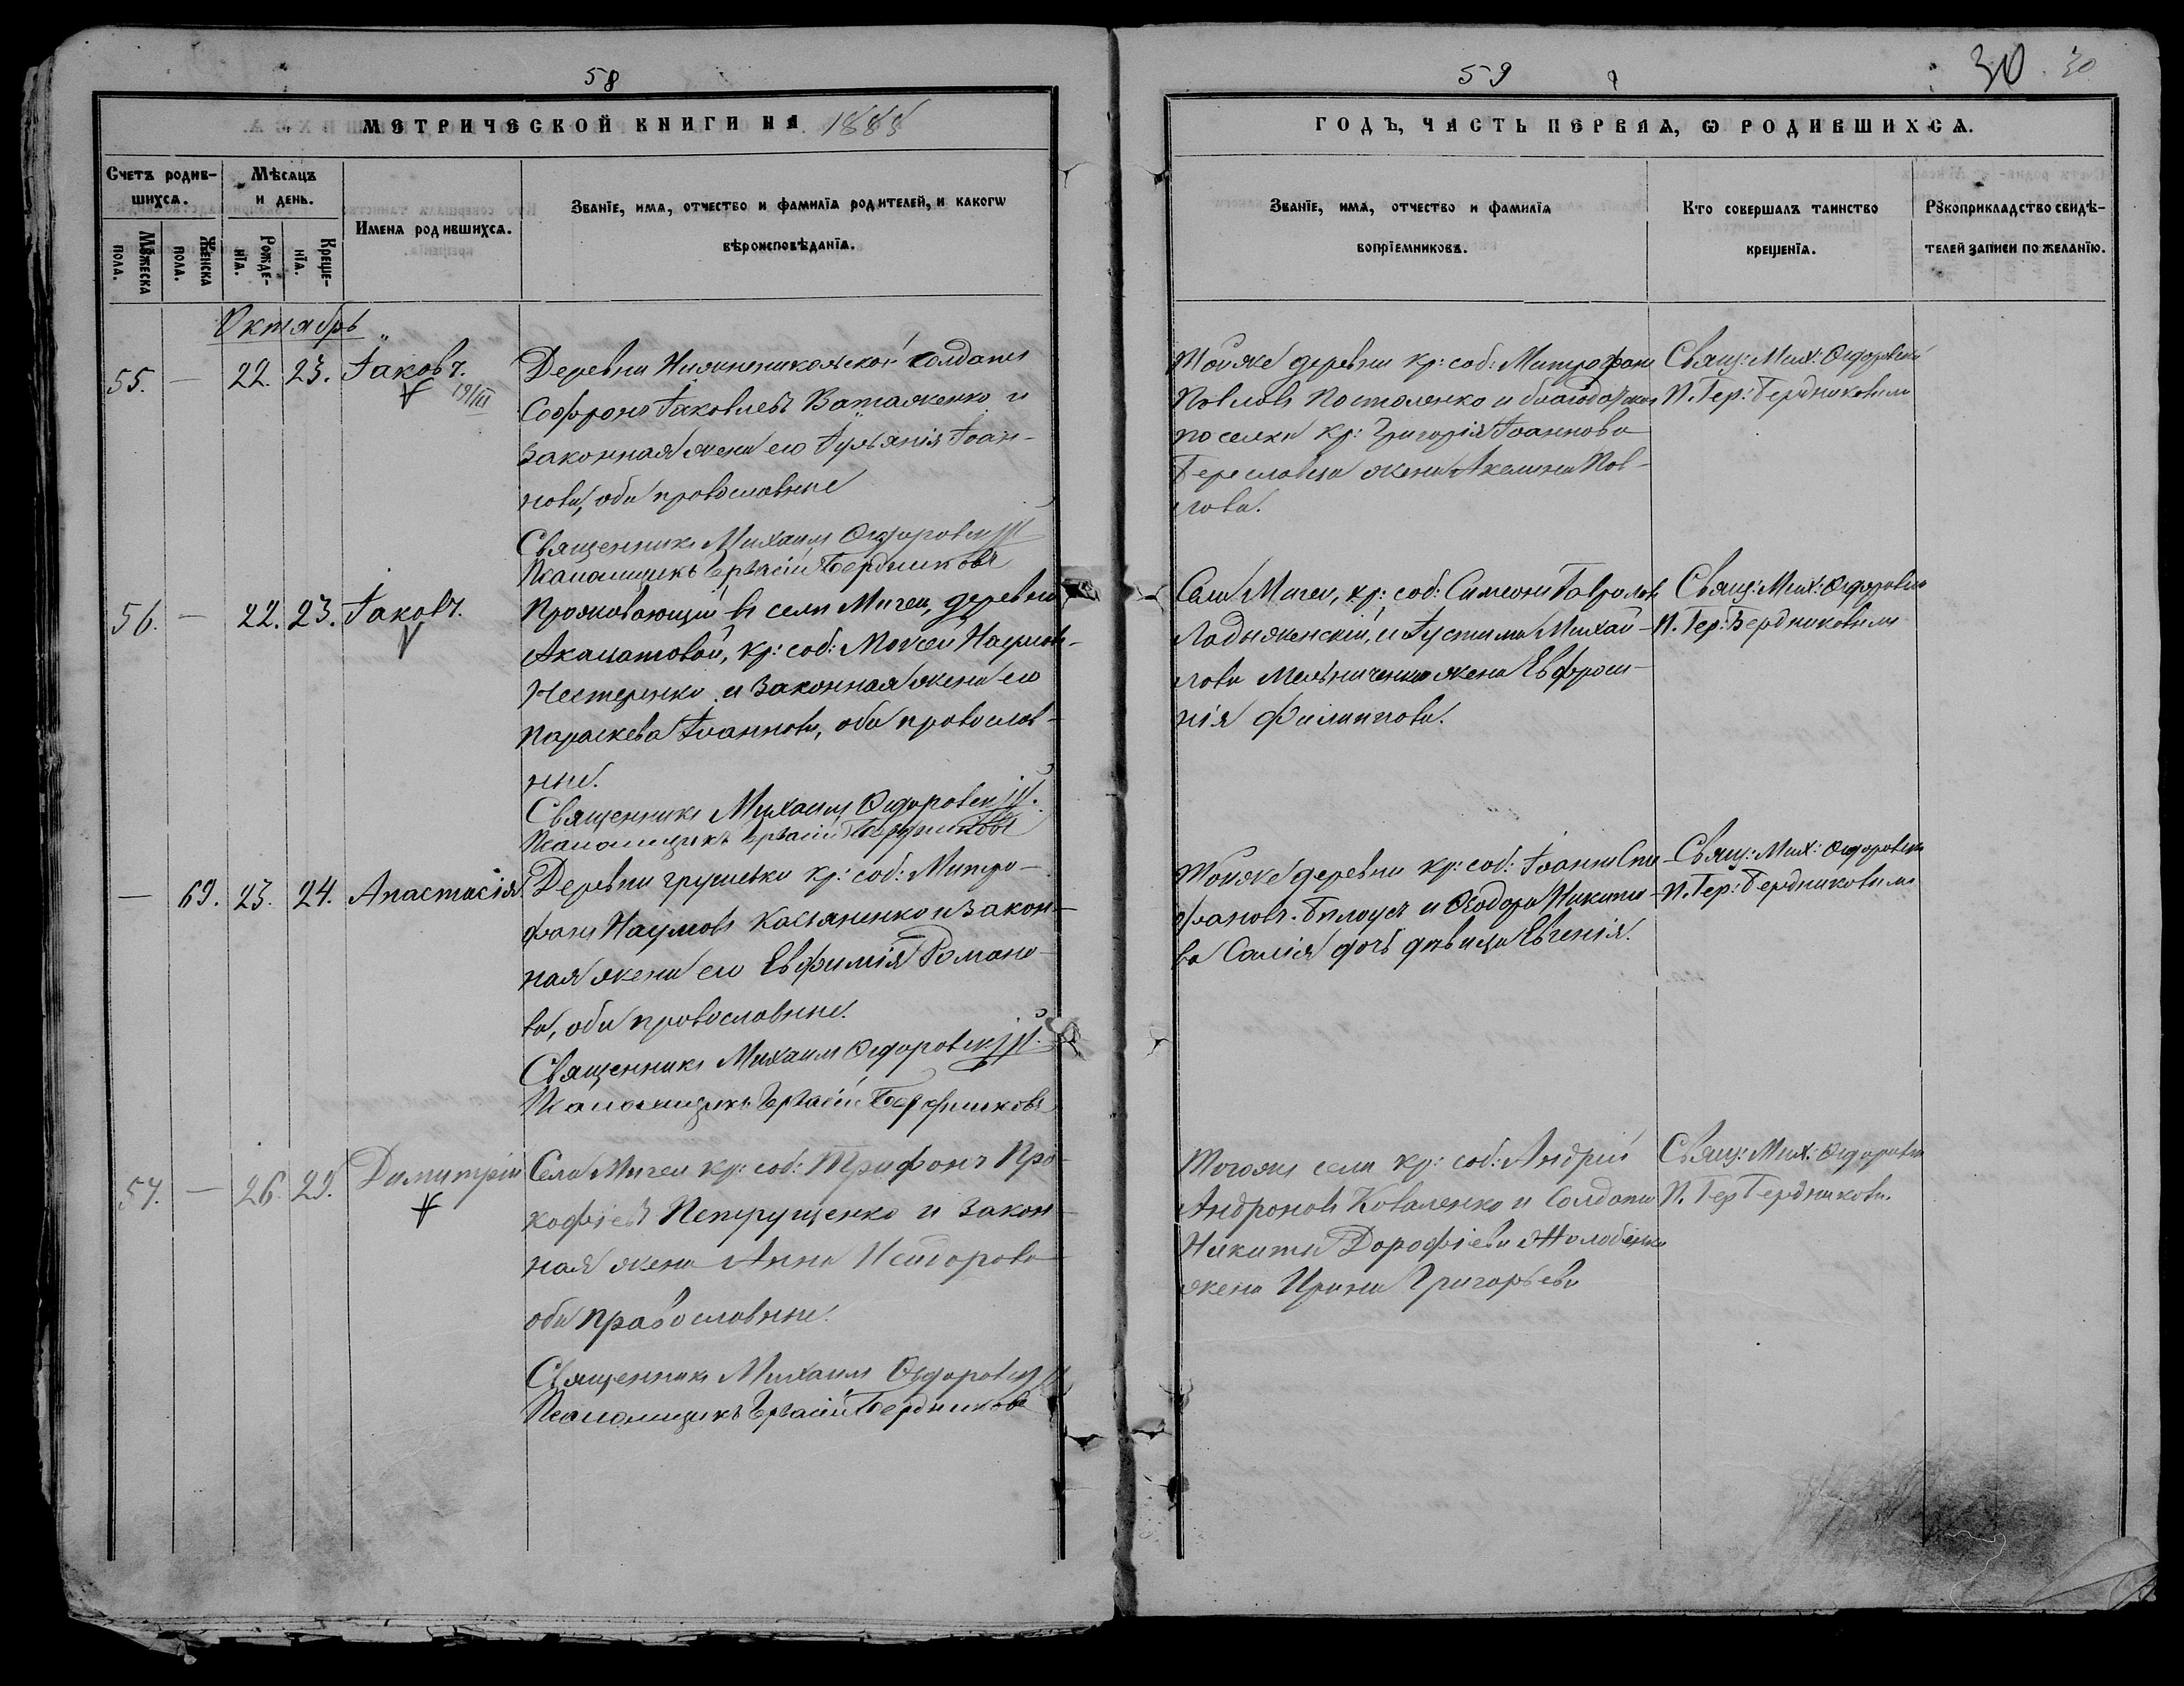 58
МЕТРИЧЕСКОЙ КНИГИ НА 1888
Счетъ родив-
шихсѧ.
Мѣсѧцъ
и день.
Имена родившихсѧ.
Званїе, имѧ, отчество и фамилїѧ родителей, и какогѡ
вѣроисповѣданїѧ.
Мꙋжеска
пола.
Женска
пола.
Рожде-
нїѧ.
Креще-
нїѧ.
Октябрь
55. — 22. 23. Іаковъ.
Деревни солдатъ
Софронъ Іаковлевъ Ватаженко и
законная жена его Іуліанія Іоан-
нова, оба православные
Священникъ Михаилъ Ѳедоровскій
Псаломщикъ Гервасій Бердниковъ
56. — 22. 23. Іаковъ.
Проживающій въ селѣ Мигеи, деревни
Акацатовой, кр: соб: Моисей Наумовъ
Нестеренко и законная жена его
Параскева Іоаннова, оба православ-
ные.
Священникъ Михаилъ Ѳедоровскій.
Псаломщикъ Гервасій Бердниковъ
— 69. 23. 24. Анастасія.
Деревни Грушевки кр: соб: Митро-
фанъ Наумовъ Касьяненко и закон-
ная жена его Евфимія Романо-
ва, оба православные.
Священникъ Михаилъ Ѳедоровскій.
Псаломщикъ Гервасій Бердниковъ
57. — 26. 29. Димитрій
Села Мигеи кр: соб: Трифонъ Про-
кофіевъ Петрущенко и закон-
ная жена Анна Исидорова
оба православные.
Священникъ Михаилъ Ѳедоровскій
Псаломщикъ Гервасій Бердниковъ
59
30 30
ГОДЪ, ЧАСТЬ ПЕРВАѦ, Ѡ РОДИВШИХСѦ.
Званїе, имѧ, отчество и фамилїѧ
воспрїемниковъ.
Кто совершалъ таинство
крещенїѧ.
Рꙋкоприкладство свидѣ-
телей записи по желанїю.
Той же деревни кр: соб: Митрофанъ
Павловъ Постоленко и
поселка кр: Григорія Іоаннова
Береславца жена Акелина Пав-
лова.
Свящ: Мих: Ѳедоровскій
П. Гер: Бердниковымъ
Села Мигеи, кр: соб: Симеонъ Гавриловъ
Ладыженскій, и Іустина Михай-
лова Мельниченка жена Евфроси-
нія Филиппова.
Свящ: Мих: Ѳедоровскій
П. Гер: Бердниковымъ
Той же деревни кр: соб: Іоаннъ Сте-
фановъ Билоусъ и Ѳеодора Никити-
ва дочь дѣвица Евгенія.
Свящ: Мих: Ѳедоровскій
П. Гер: Бердниковымъ
Тогожъ села кр: соб: Андрей
Андроновъ Коваленко и солдата
Никиты Дорофіева Жолобенка
жена Ирина Григорьева
Свящ: Мих: Ѳедоровскій
П. Гер Бердниковъ.